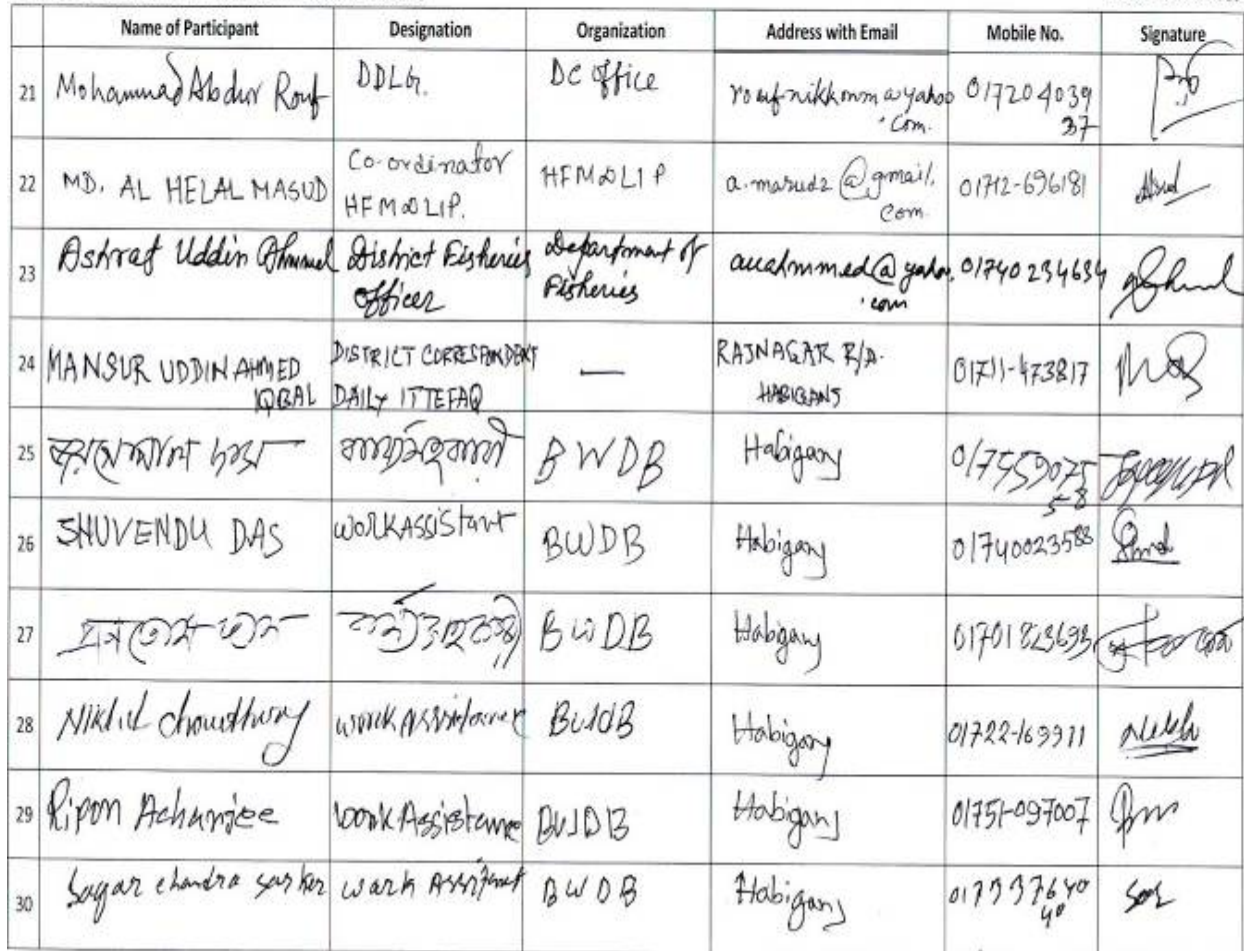 Name of Participant Designation Organization Address with Email Mobile No. Signature
21 Mohammad Abdur Rouf DDLG. DC office rouf.nikkonm@yahoo 017204039
.com. 37
22 MD. AL HELAL MASUD Co-ordinator HFM&LIP a.masud2@gmail. 01712-696181
HFM&LIP. com.
23 Ashraf Uddin Ahmmed District Fisheries Department of auahmmed@yahoo. 01740234634
officer Fisheries .com
24 MANSUR UDDIN AHMED DISTRICT CORRESPONDENT — RAJNAGAR R/A. 01711-473817
IQBAL DAILY ITTEFAQ HABIGANJ
25 BWDB Habiganj 017559075
58
26 SHUVENDU DAS WORKASSIStant BWDB Habiganj 01740023588
27 BWDB Habiganj 01701823693
28 Nikhil Chowdhury work Assistance BWDB Habiganj 01722-169911
29 Ripon Acharjee work Assistance BWDB Habiganj 01751-097007
30 Sagar chandra sarker work Assistant BWDB Habiganj 017337640
40